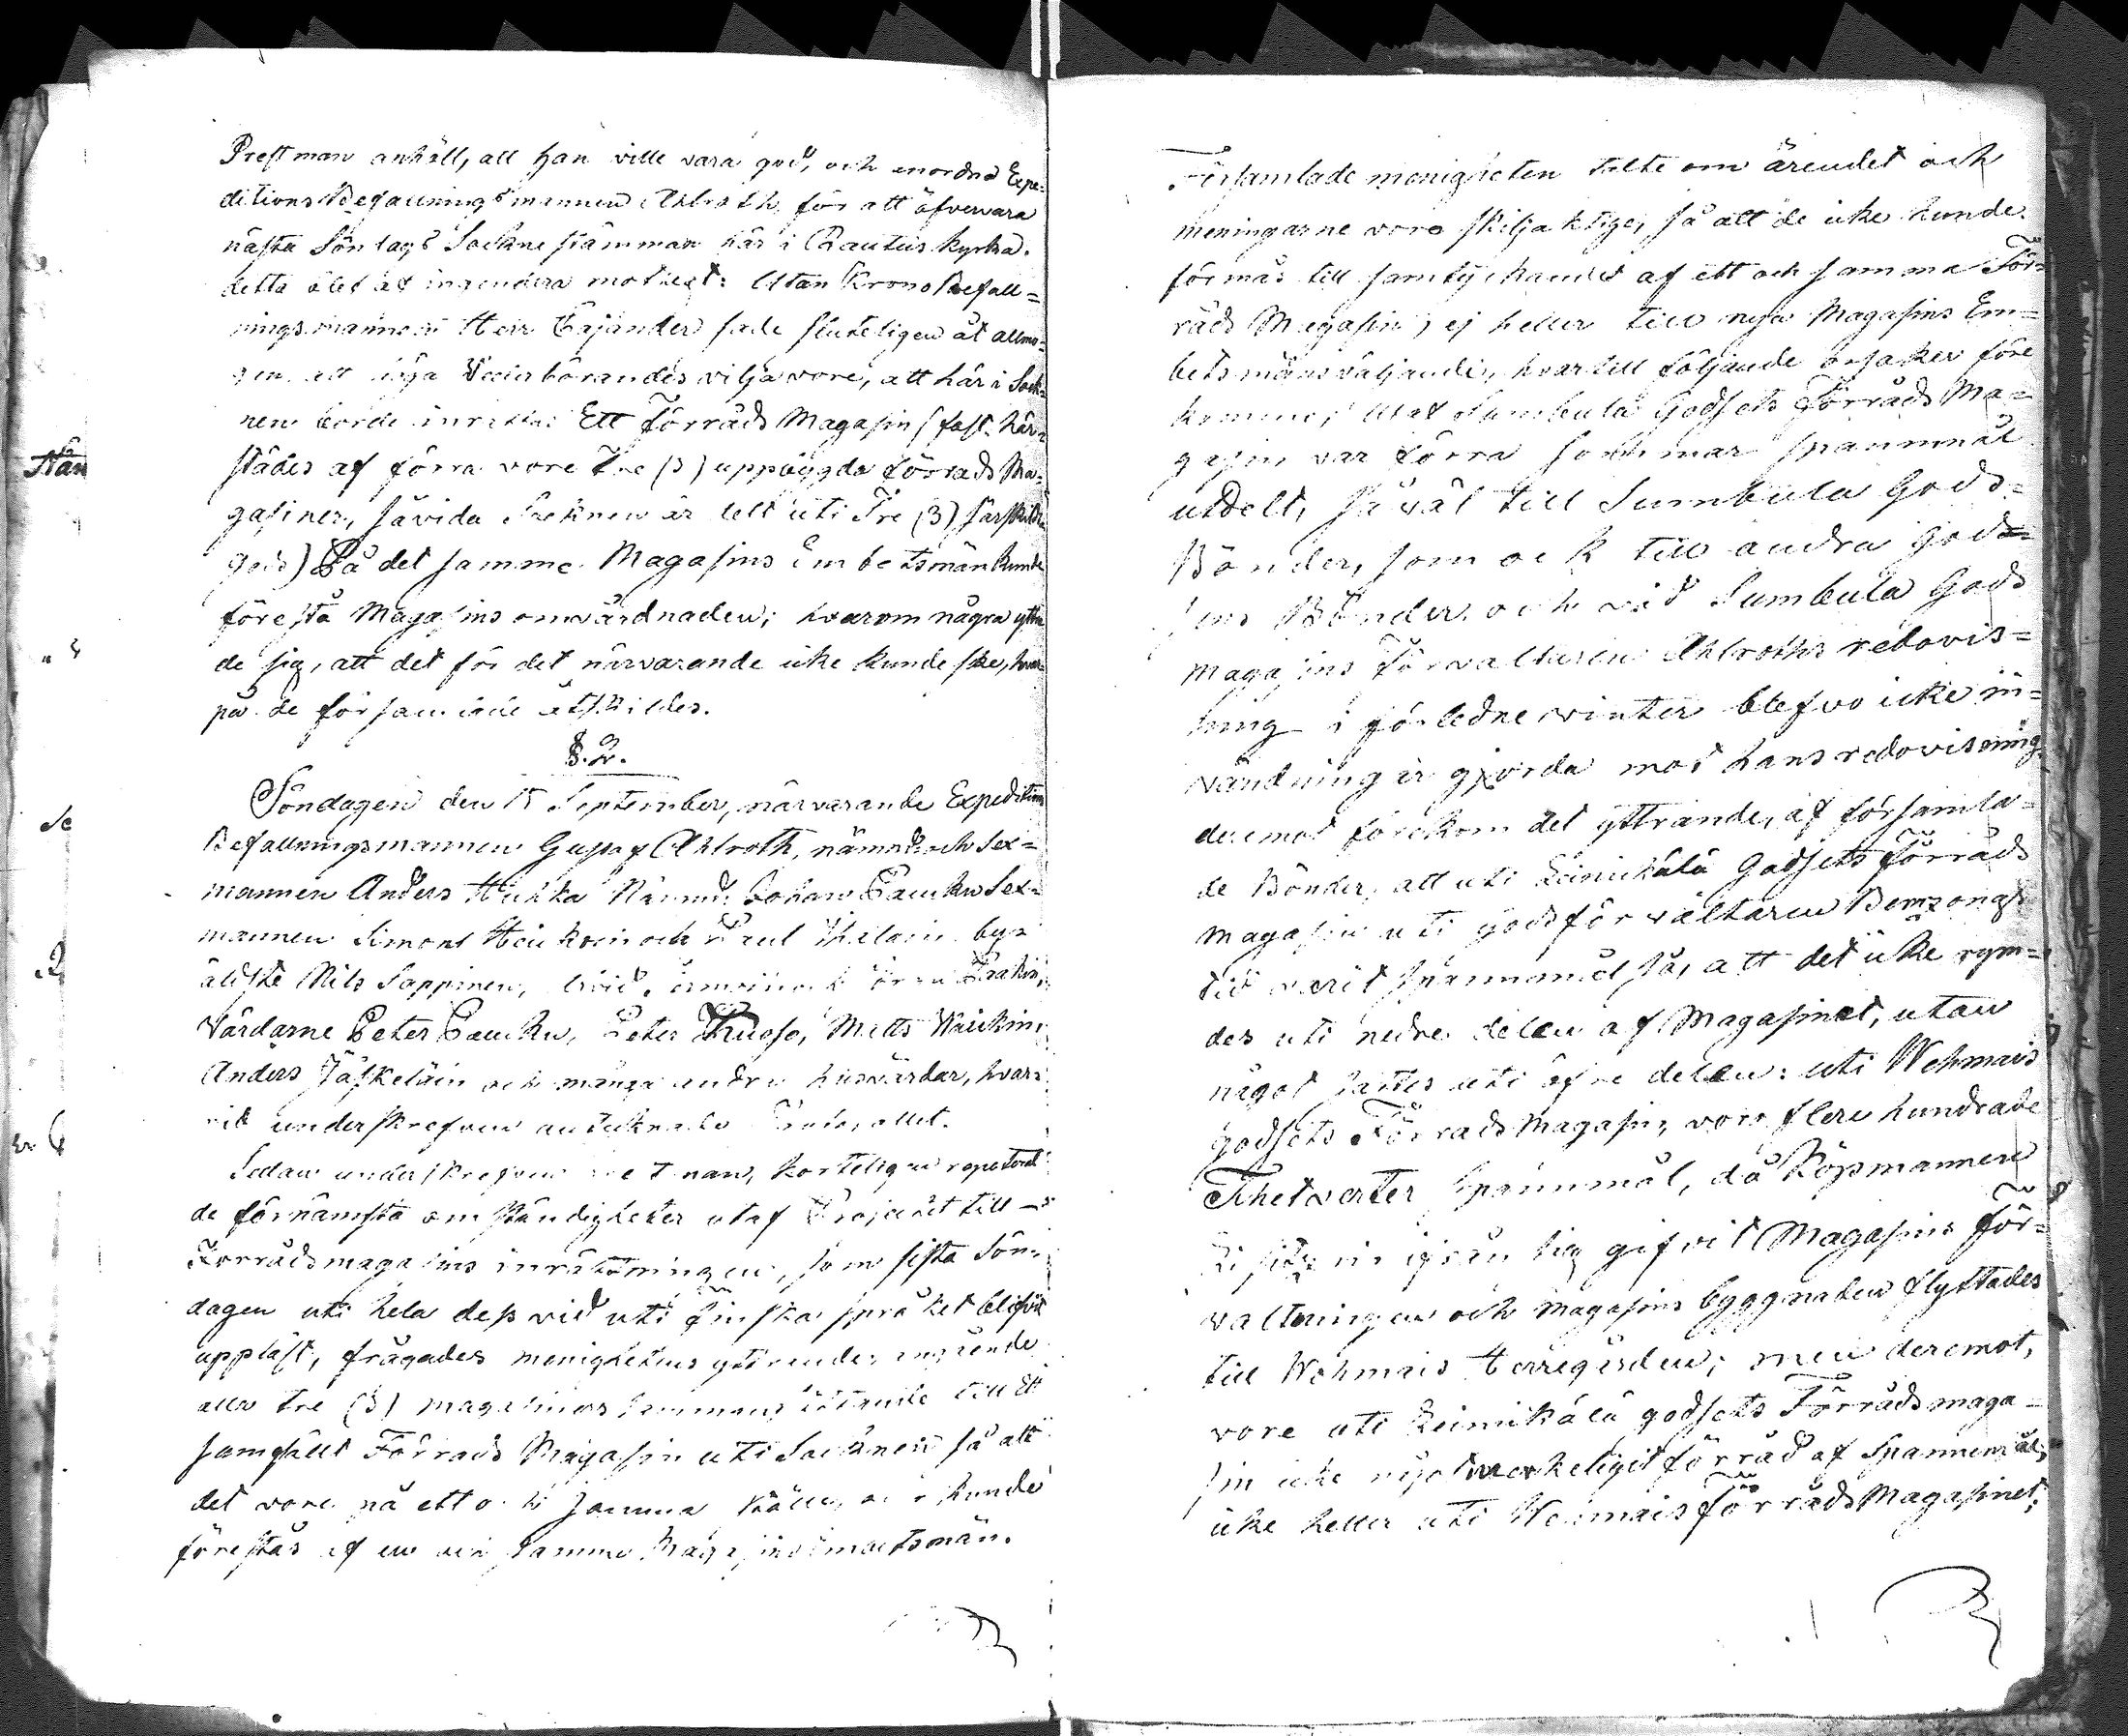 Prestman anhåll, att han ville vara god, och anordna Expe=
ditions Befallningsmannen Ahlroth, för att öfvervara
nästa Söndags Sockne stämman här i Rautus kyrka.
detta blef af ingendera motsagt: Utan Krono Befall=
ningsmannen Herr Cajander sade sluteligen åt allmo=
gen, att höga Vederbörandes vilja vore, att här i Sock=
nen borde inrättas Ett Förråds Magasin (fast. här=
städes af förra vore Tre (3) uppbygda förråds Ma=
gasiner, såvida Socknen är delt uti Tre (3) särskilda
gods) På det samma Magasins Embetsmän kunde
förestå Magasins omvårdnaden; hvarom några yttra
de sig, att det för det närvarande icke kunde ske, hvar=
på de församlade åtskildes.
§. 2.
Söndagen den 15 September, närvarande Expeditions
Befallningsmannen Gustaf Ahlroth, nämnd. och Sex=
mannen Anders Hukka Nämnd. Johan Paukku Sex=
mannen Simon Heukoin och Paul Ihaloin by=
äldste Nils Sappinen,
Värdarne Peter Paukku, Peter Kuoso, Matts Waickin,
Anders Jäskeläin och många andra husvärdar, hvar=
vid underskrefven antecknade Protocollet.
Sedan underskrefven Prestman, korteligen repeterat
de förnämsta omständigheter utaf Projectet till
Förrådsmagasins inrättningen, som sista Sön=
dagen uti hela dess vid uti finska språket blifvit
uppläst, frågades menighetens yttrande, angående
alla tre (3) magasiners sammansättande till Ett
samfällt Förråds Magasin uti Socknen så att
det vore på ett och samma ställe, och kunde
förestås af en och samma Magasins Embetsmän.
Församlade menigheten talte om ärendet och
meningarne voro skiljaktige, så att de icke kunde
förmås till samtyckandet af ett och samma För=
råds Magasin, ej heller till nya Magasins Em=
betsmäns väljande, hvartill följande orsaker före
kommo; Utaf Sumbula Godsets Förråds Ma=
gasin var förra sommar spannmål
utdelt, så väl till Sumbula Gods=
Bönder, som ock till andra gods=
ens Bönder. och vid Sumbula Gods
Magasins Förvaltaren Ahlroths redovis=
ning i förledne winter blefvo icke in=
vändningar gjorda mot hans redovisning
deremot förekom det yttrande, af församla=
de Bönder, att uti Leinikälä Godsets Förråds
magasin uti godsförvaltaren Bemzongs
tid varit spannmål så, att det icke rym=
des uti nedre delen af Magasinet, utan
något sattes uti öfre delen: uti Wehmais
godsets Förråds Magasin, voro flere hundrade
Thetverter Spannmål, då Köpsmannen
ifrån sig gifvit Magasins För=
valtningen och magasins byggnaden flyttades
till Wehmais Herregården; men deremot,
vore uti Leinikälä godsets Förrådsmaga=
sin icke något merkeligit förråd af Spannemål,
icke heller uti Wehmais Förråds Magasinet;